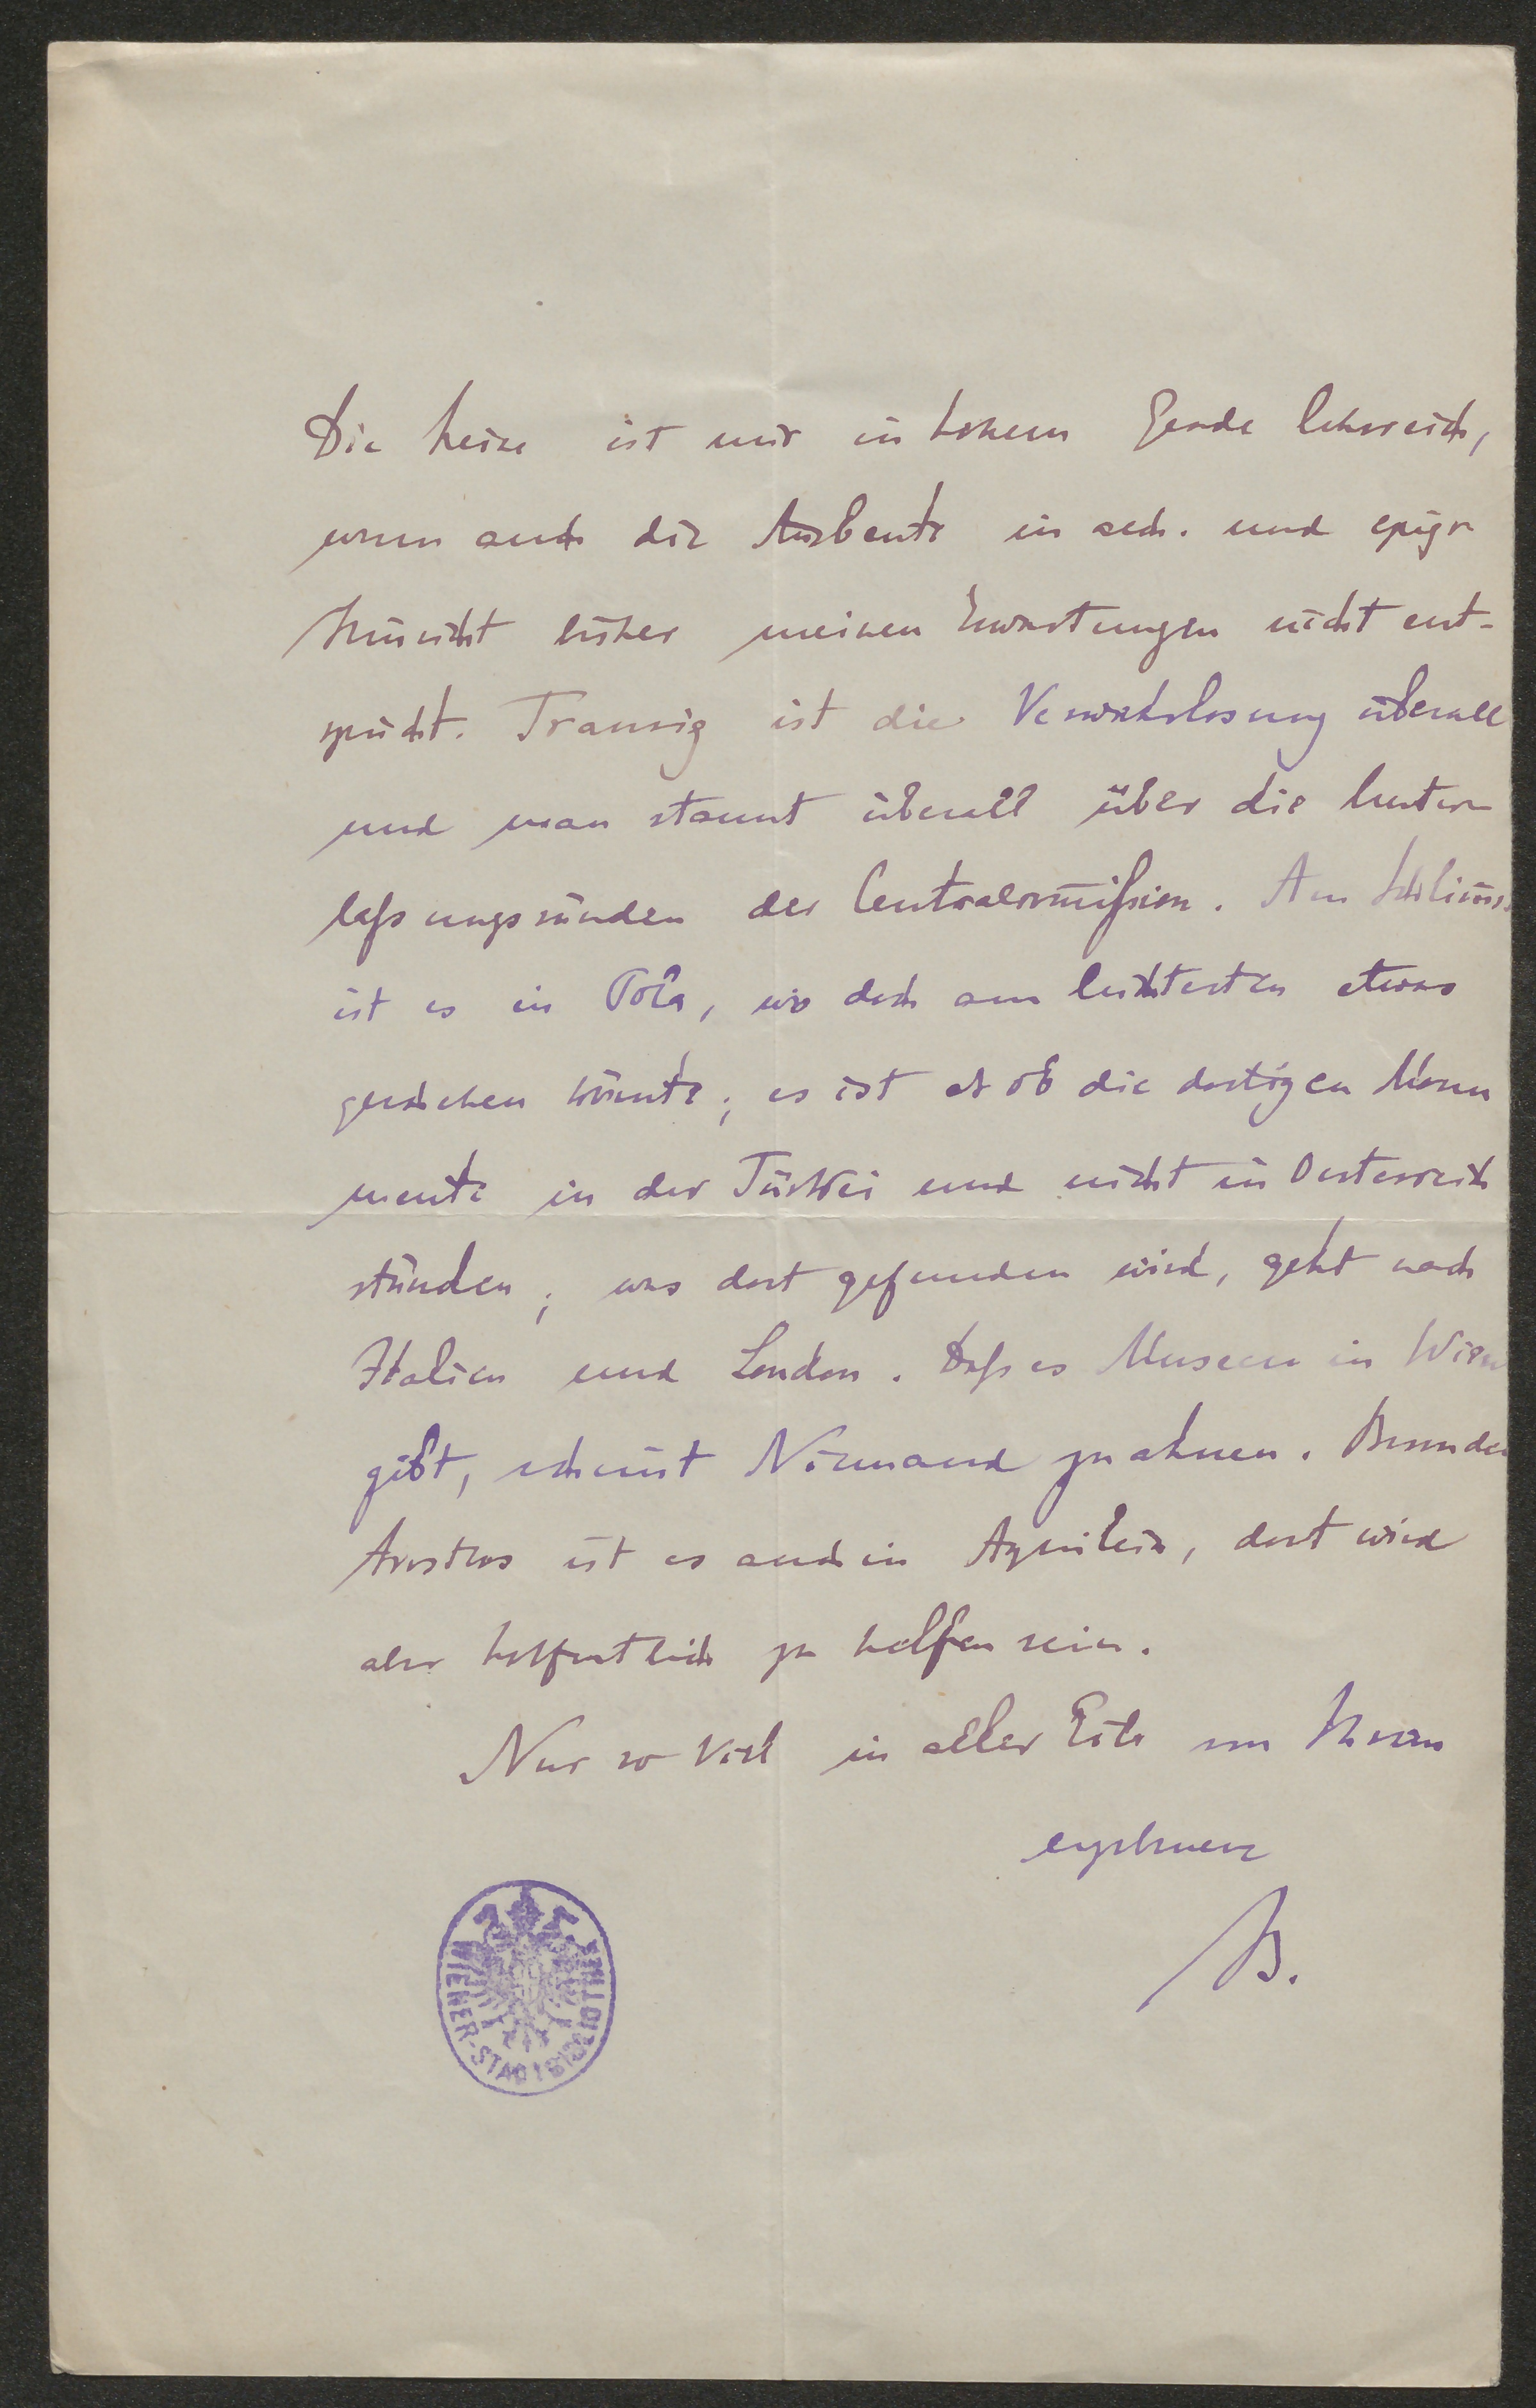 Die Reise ist mir in hohem Grade lehrreich,
wenn auch die Ausbeute in arch. und epigr
Hinsicht bisher meinen Erwartungen nicht ent-
spricht. Traurig ist die Verwahrlosung überall
und man staunt überall über die Unter-
laßungssünden der Centralcom̅ißion. Am Schlim̅s
ist es in Pola, wo doch am leichtesten etwas
geschehen könnte; es ist als ob die dortigen Monu
mente in der Türkei und nicht in Oesterreich
stünden; was dort gefunden wird, geht nach
Italien und London. Daß es Museen in Wien
gibt, scheint Niemand zu ahnen. Besonders
trostlos ist es auch in Aquileia, dort wird
aber hoffentlich zu helfen sein.
Nur so viel in aller Eile von Ihrem
ergebenen
B.
WIENER-STADTBIBLIOTHEK